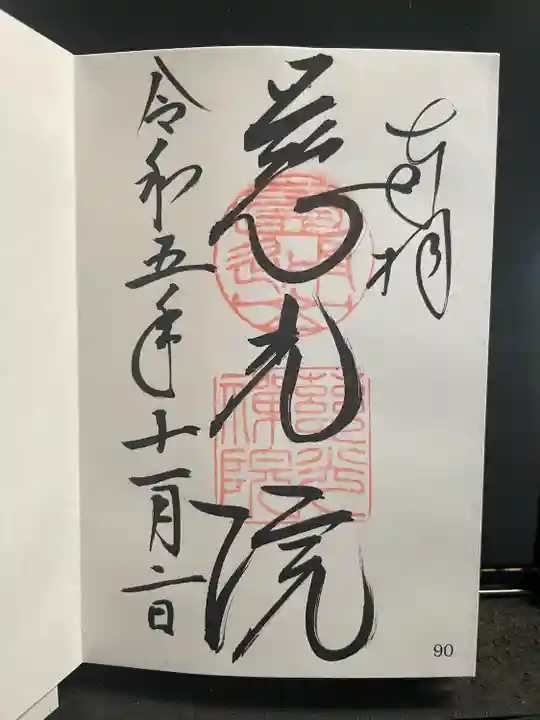 奉拝
慈光院
令和五年十一月二日
慈光禅院
90